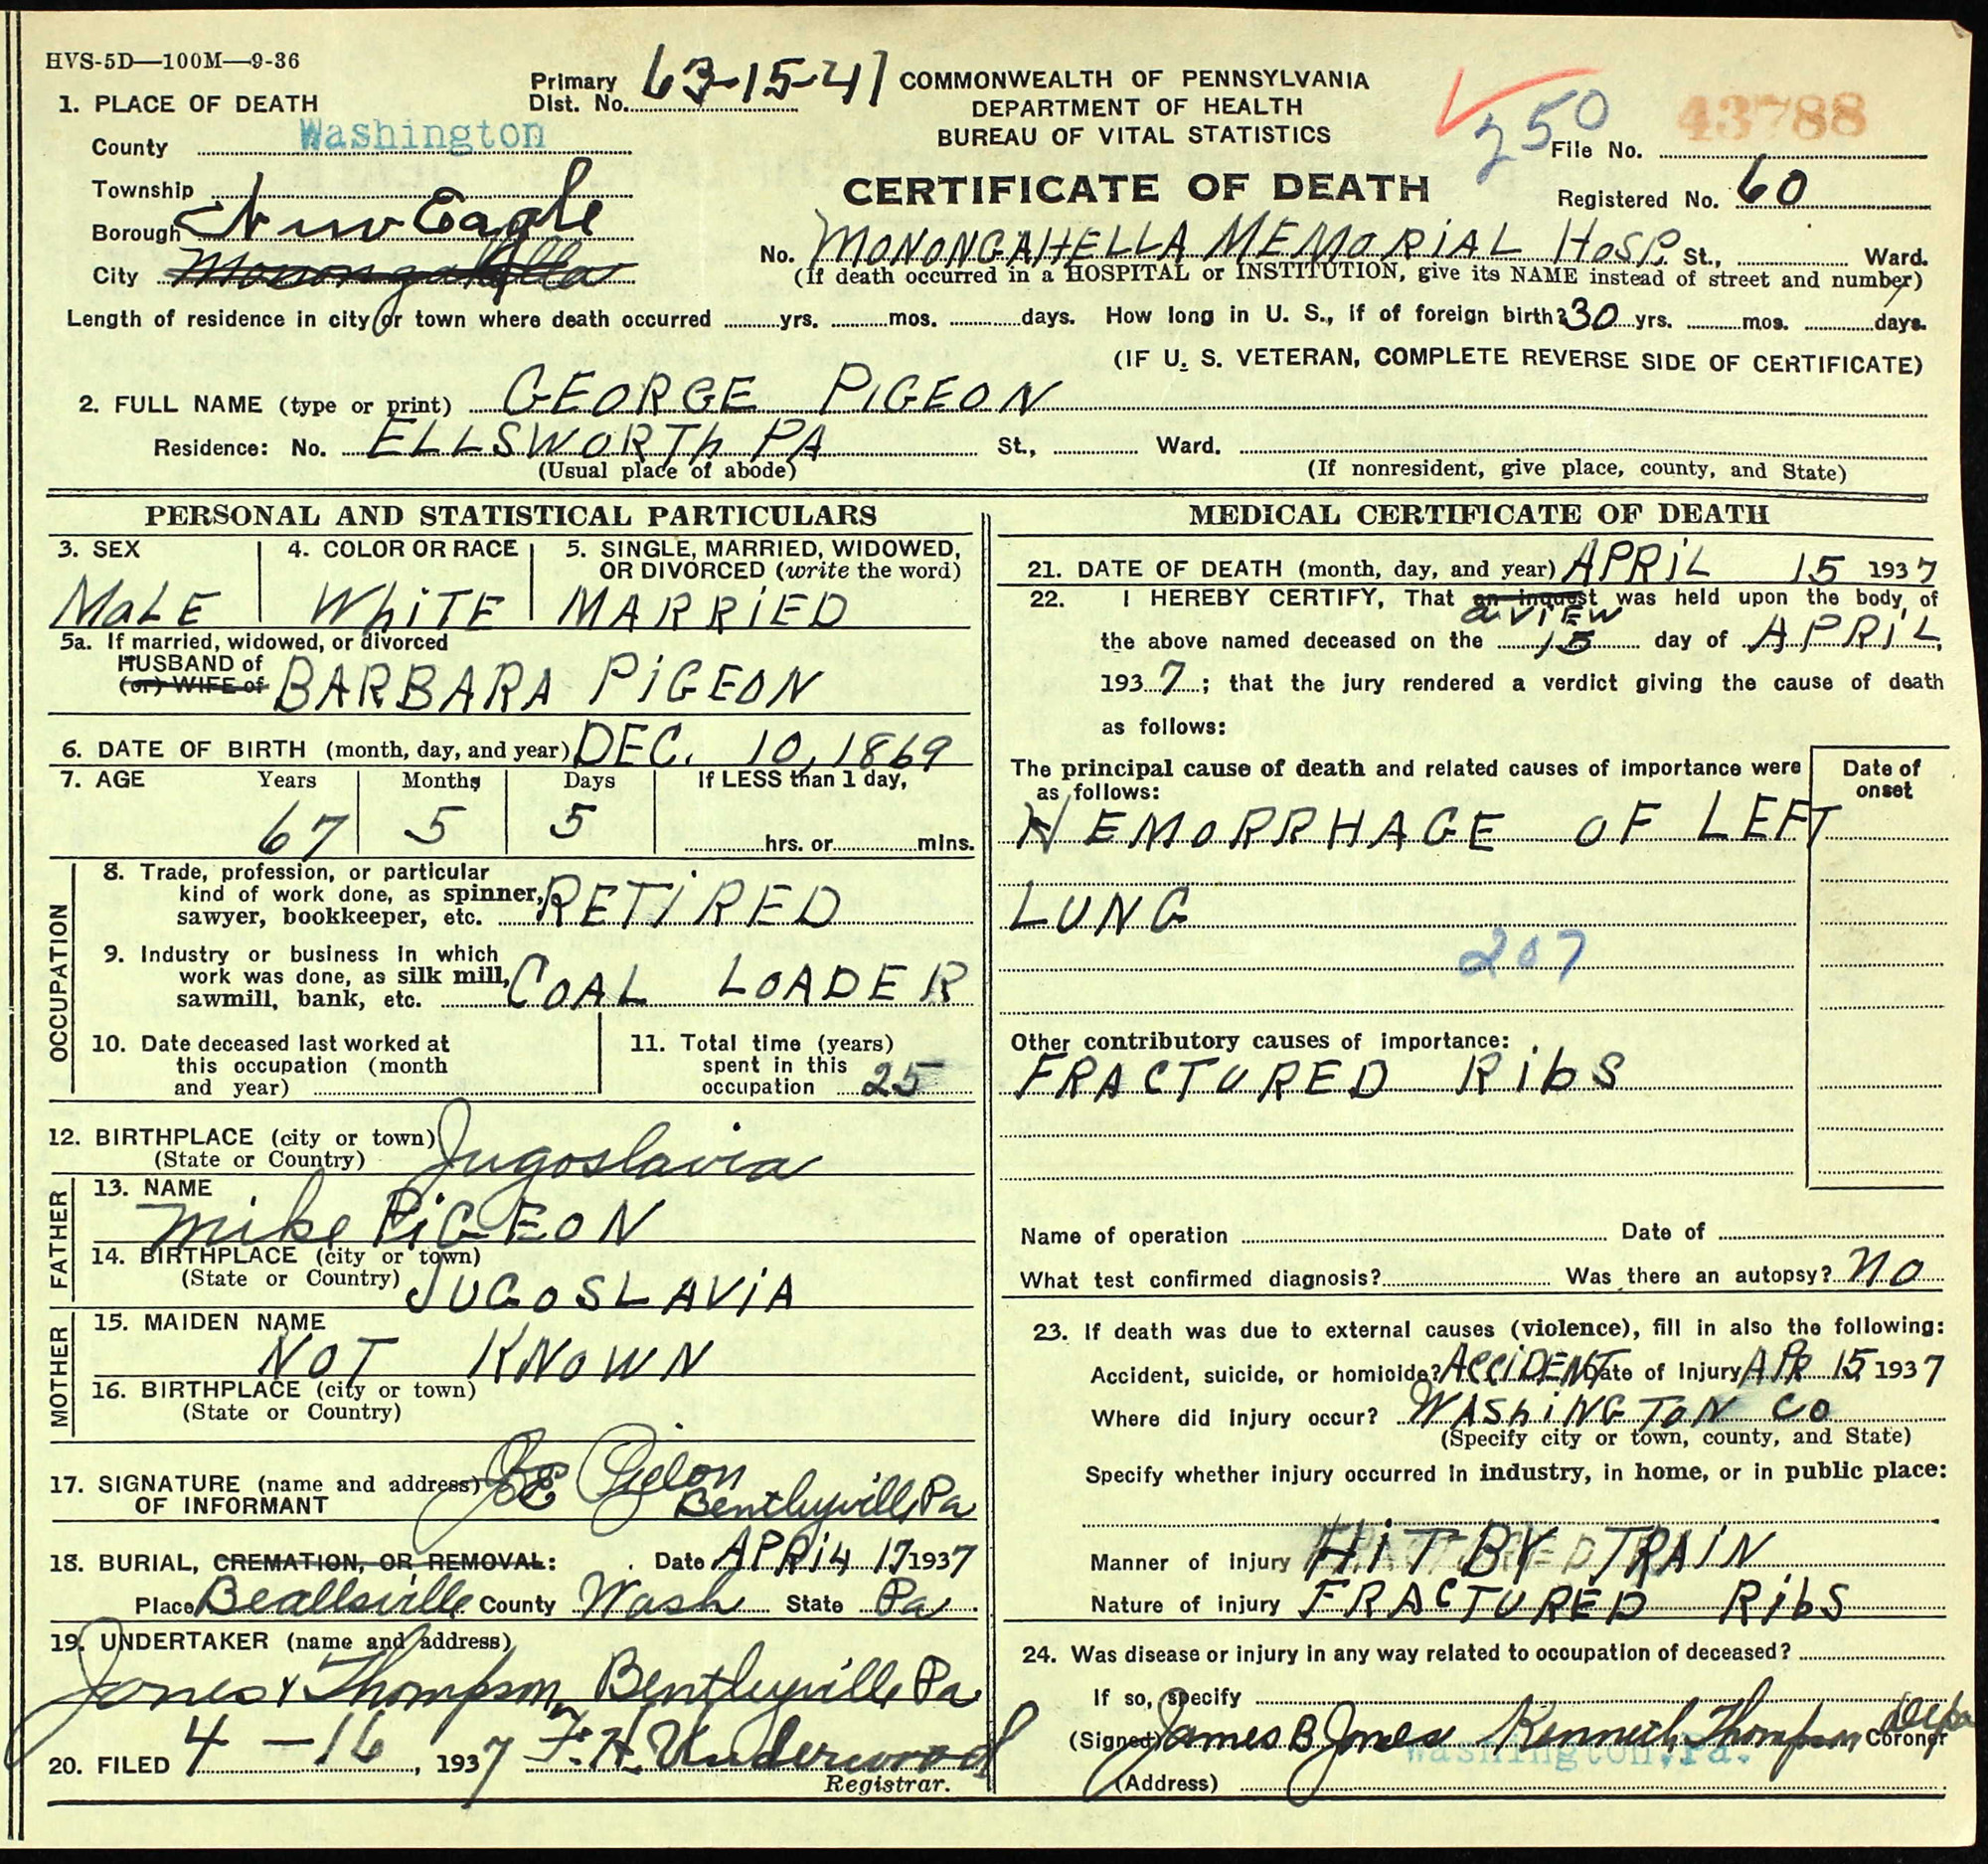 HVS-5D—100M—9-36
Primary Dist. No. 63-15-41
COMMONWEALTH OF PENNSYLVANIA
DEPARTMENT OF HEALTH
BUREAU OF VITAL STATISTICS
CERTIFICATE OF DEATH
250
43788
File No.
Registered No. 60
1. PLACE OF DEATH
County Washington
Township
Borough New Eagle
City Monongahella
No. MONONGAHELLA MEMORIAL HOSP. St., Ward.
(If death occurred in a HOSPITAL or INSTITUTION, give its NAME instead of street and number)
Length of residence in city or town where death occurred yrs. mos. days. How long in U. S., if of foreign birth? 30 yrs. mos. days.
(IF U. S. VETERAN, COMPLETE REVERSE SIDE OF CERTIFICATE)
2. FULL NAME (type or print) GEORGE PIGEON
Residence: No. ELLSWORTh PA St., Ward.
(Usual place of abode) (If nonresident, give place, county, and State)
PERSONAL AND STATISTICAL PARTICULARS
3. SEX
MaLE
4. COLOR OR RACE
WhiTE
5. SINGLE, MARRIED, WIDOWED, OR DIVORCED (write the word)
MARRiED
5a. If married, widowed, or divorced
HUSBAND of
(or) WIFE of BARBARA PiGEON
6. DATE OF BIRTH (month, day, and year) DEC. 10, 1869
7. AGE Years Months Days If LESS than 1 day,
67 5 5 hrs. or mins.
OCCUPATION
8. Trade, profession, or particular
kind of work done, as spinner,
sawyer, bookkeeper, etc. RETiRED
9. Industry or business in which
work was done, as silk mill,
sawmill, bank, etc. COAL LOADER
10. Date deceased last worked at
this occupation (month
and year)
11. Total time (years)
spent in this
occupation 25
12. BIRTHPLACE (city or town) Jugoslavia
(State or Country)
FATHER
13. NAME
Mike PiGEON
14. BIRTHPLACE (city or town)
(State or Country) JUGOSLAViA
MOTHER
15. MAIDEN NAME
NOT KNOWN
16. BIRTHPLACE (city or town)
(State or Country)
17. SIGNATURE (name and address)
OF INFORMANT Bentleyville, Pa
18. BURIAL, CREMATION, OR REMOVAL: Date APRiL 17 1937
Place Beallsville County Wash State Pa.
19. UNDERTAKER (name and address)
Jones & Thompson, Bentleyville Pa
20. FILED 4-16, 1937 F. H. Underwood
Registrar.
MEDICAL CERTIFICATE OF DEATH
21. DATE OF DEATH (month, day, and year) APRiL 15 1937
22. I HEREBY CERTIFY, That an inquest was held upon the body of
a ViEW
the above named deceased on the 15 day of APRiL,
1937; that the jury rendered a verdict giving the cause of death
as follows:
The principal cause of death and related causes of importance were
as follows:
Date of onset
HEMORRHAGE OF LEFT
LUNG
207
Other contributory causes of importance:
FRACTURED RibS
Name of operation Date of
What test confirmed diagnosis? Was there an autopsy? No
23. If death was due to external causes (violence), fill in also the following:
Accident, suicide, or homicide? ACCiDENT Date of Injury APR 15, 1937
Where did injury occur? WAShiNGTON CO
(Specify city or town, county, and State)
Specify whether injury occurred in industry, in home, or in public place:
Manner of injury HiT BY TRAiN
Nature of injury FRACTURED RibS
24. Was disease or injury in any way related to occupation of deceased?
If so, specify
(Signed) James B Jones Kenneth Thompson Coroner
Washington, Pa.
(Address)